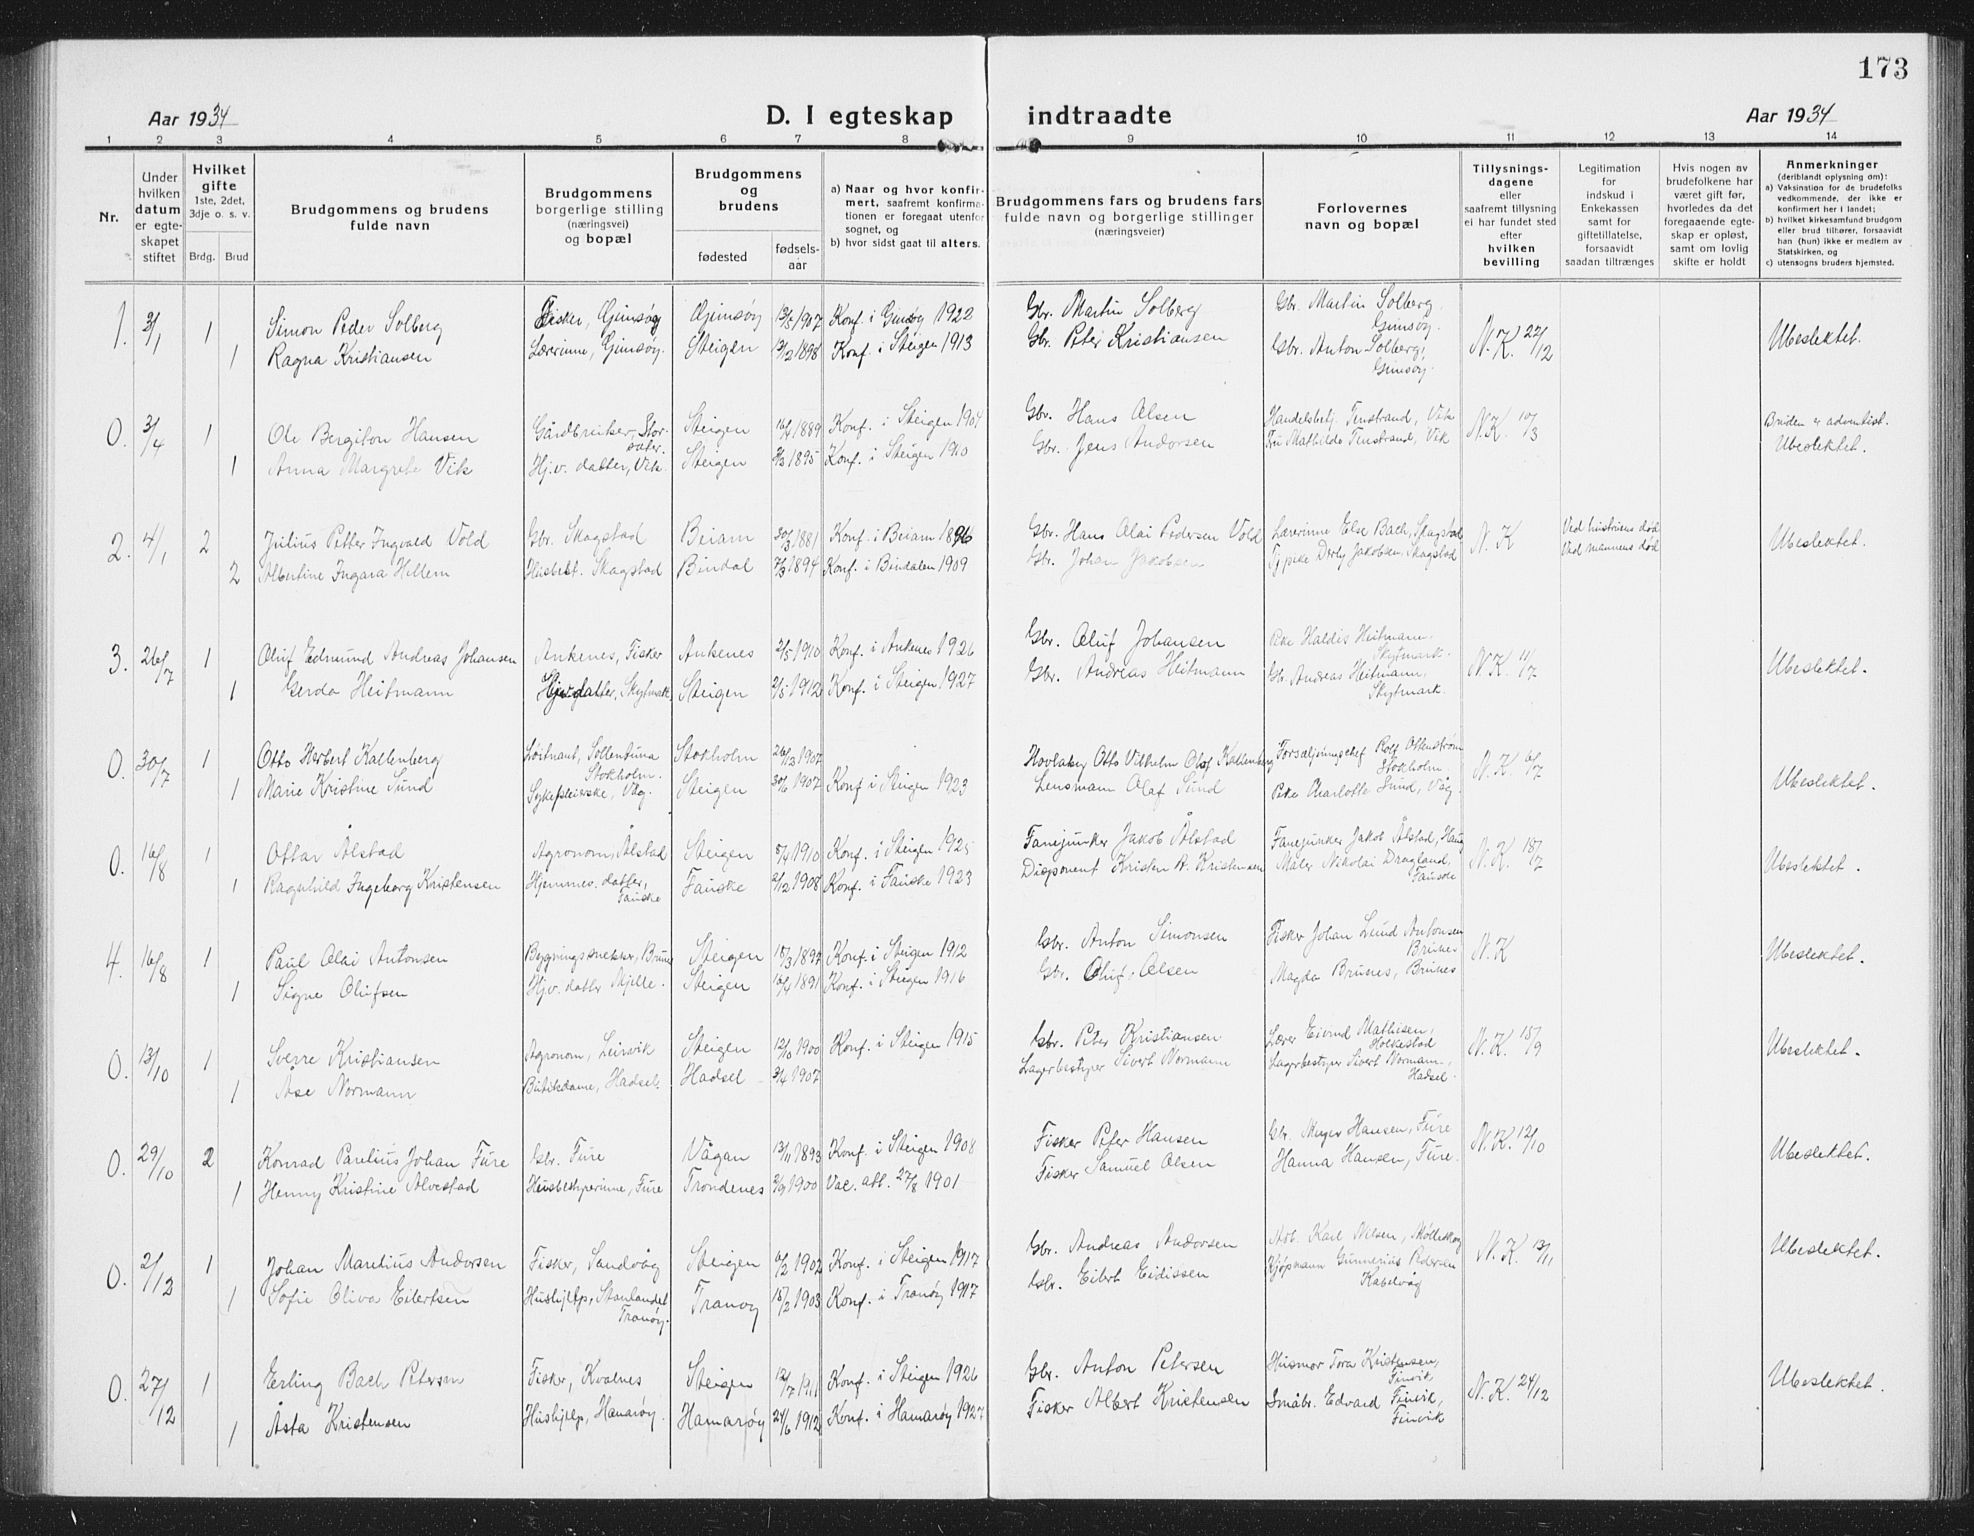 173
Aar 1934 D. I egteskap indtraadte Aar 1934
1 2 3 4 5 6 7 8 9 10 11 12 13 14
Nr.
Under hvilken datum er egteskapet stiftet
Hvilket gifte 1ste, 2det, 3dje o. s. v.
Brdg. Brud
Brudgommens og brudens fulde navn
Brudgommens borgerlige stilling (næringsvei) og bopæl
Brudgommens og brudens
fødested
fødselsaar
a) Naar og hvor konfirmert, saafremt konfirmationen er foregaat utenfor sognet, og
b) hvor sidst gaat til alters.
Brudgommens fars og brudens fars fulde navn og borgerlige stillinger (næringsveier)
Forlovernes navn og bopæl
Tillysningsdagene eller saafremt tillysning ei har fundet sted efter hvilken bevilling
Legitimation for indskud i Enkekassen samt for giftetillatelse, forsaavidt saadan tiltrænges
Hvis nogen av brudefolkene har været gift før, hvorledes da det foregaaende egteskap er opløst, samt om lovlig skifte er holdt
Anmerkninger (deriblandt oplysning om):
a) Vaksination for de brudefolks vedkommende, der ikke er konfirmert her i landet;
b) hvilket kirkesamfund brudgom eller brud tilhører, forsaavidt han (hun) ikke er medlem av Statskirken, og
c) utensogns bruders hjemsted.
1. 3/1 1 Simon Peder Solberg Fisker, Gimsøy Gimsøy 1907 Konf. i Gimsøy 1922 Gbr. Martin Solberg Gbr. Martin Solberg, Gimsøy. N.K. 22/12 Ubeslektet.
1 Ragna Kristiansen Lærerinne, Gimsøy. Steigen 1898 Konf. i Steigen 1913 Gbr. Peter Kristiansen Gbr. Anton Solberg, Gimsøy.
0. 3/4 1 Ole Bergiton Hansen Gårdbruker, Storsæter. Steigen 1889 Konf. i Steigen 1904 Gbr. Hans Olsen Handelsbetj. Tenstrand, Vik N.K. 10/3 Bruden er adventist.
1 Anna Margrete Vik Hj.v. datter, Vik. Steigen 1895 Konf. i Steigen 1910 Gbr. Jens Andorsen Fru Mathilde Tenstrand, Vik Ubeslektet.
2. 4/1 2 Julius Petter Ingvald Vold Gbr. Skagstad Beiarn 30/3 1881 Konf. i Beiarn 1896 Gbr. Hans Olai Pedersen Vold Lærerinne Else Bach, Skagstad N.K Ved hustruens død Ubeslektet.
2 Albertine Ingara Hellem Husbest. Skagstad Bindal 1894 Konf. i Bindalen 1909 Gbr. Johan Jakobsen Jakobsen, Skagstad Ved mannens død
3. 26/7 1 Oluf Edmund Andreas Johansen Ankenes, Fisker Ankenes 2/5 1910 Konf. i Ankenes 1926 Gbr. Oluf Johansen Pike Haldis Heitmann, Skytmark. N.K. 11/7 Ubeslektet.
1 Gerda Heitmann datter, Skytmark Steigen 1912 Konf. i Steigen 1927 Gbr. Andreas Heitmann Gb. Andreas Heitmann, Skytmark.
0. 30/7 1 Otto Herbert Kallenberg Løitnant, Sollentuna Stokholm. Stokholm 26/3 1907 Otto Vilhelm Olof Kallenberg Forsaljningschef Rolf Ottenstrøm Stokholm. N.K. 6/7 Ubeslektet.
1 Marie Kristine Sund Sykepleierske, Våg. Steigen 30/6 1907 Konf i Steigen 1923 Lensmann Olaf Sund Pike Charlotte Sund, Våg.
0. 16/8 1 Ottar Ålstad Agronom, Ålstad Steigen 1910 Konf. i Steigen 1925 Fanejunker Jakob Ålstad Fanejunker Jakob Ålstad, Haug N.K. 18/7 Ubeslektet.
1 Ragnhild Ingeborg Kristensen Hjemmev. datter, Fauske Fauske 1908 Konf. i Fauske 1923 Disponent Kristen R. Kristensen Maler Nikolai Dragland, Fauske
4. 16/8 1 Paul Olai Antonsen Bygningssnekker, Brunes Steigen 18/3 1897 Konf. i Steigen 1912 Gbr. Anton Simonsen Fisker Johan Lund Antonsen Brunes N.K Ubeslektet.
1 Signe Olufsen Hjv. datter Steigen 16/4 1891 Konf. i Steigen 1916 Gbr. Oluf Olsen Magda Brunes, Brunes
0. 13/10 1 Sverre Kristiansen Agronom, Leirvik Steigen 12/10 1900 Konf. i Steigen 1915 Gbr. Peter Kristiansen Lærer Eivind Mathisen, Holkestad N.K. 15/9 Ubeslektet.
1 Åse Normann Butikdame, Hadsel. Hadsel 3/4 1907 Lagerbestyrer Sivert Normann Lagerbestyrer Sivert Normann, Hadsel.
0. 29/10 2 Konrad Parelius Johan Fure Gbr. Fure Vågan 13/11 1893 Konf. i Steigen 1908 Fisker Peter Hansen Gbr. Meyer Hansen, Fure N.K. 12/10 Ubeslektet.
1 Henny Kristine Alvestad Husbestyrerinne, Fure Trondenes 1900 Vac. att. 27/8 1901 Fisker Samuel Olsen Hanna Hansen, Fure.
0. 2/12 1 Johan Marelius Andorsen Fisker, Sandvåg Steigen 6/2 1902 Konf. i Steigen 1917 Gbr. Andreas Andorsen Arb. Karl Nilsen, N.K. 13/11 Ubeslektet.
1 Sofie Oliva Eilertsen Hushjelp, Stanlandet Tranøy. Tranøy 18/2 1903 Konf. i Tranøy 1917 Gbr. Eilert Eidissen Kjøpmann Gunnerius Pedersen Kabelvåg
0. 27/12 1 Erling Bach Petersen Fisker, Kvalnes Steigen 12/7 1911 Konf. i Steigen 1926 Gbr. Anton Petersen Husmor Tora Kristensen, Finvik N.K. 24/12 Ubeslektet.
1 Åsta Kristensen Hushjelp, Hamarøy. Hamarøy 24/6 1912 Konf. i Hamarøy 1927 Fisker Albert Kristensen Småbr. Edvard Finvik, Finvik